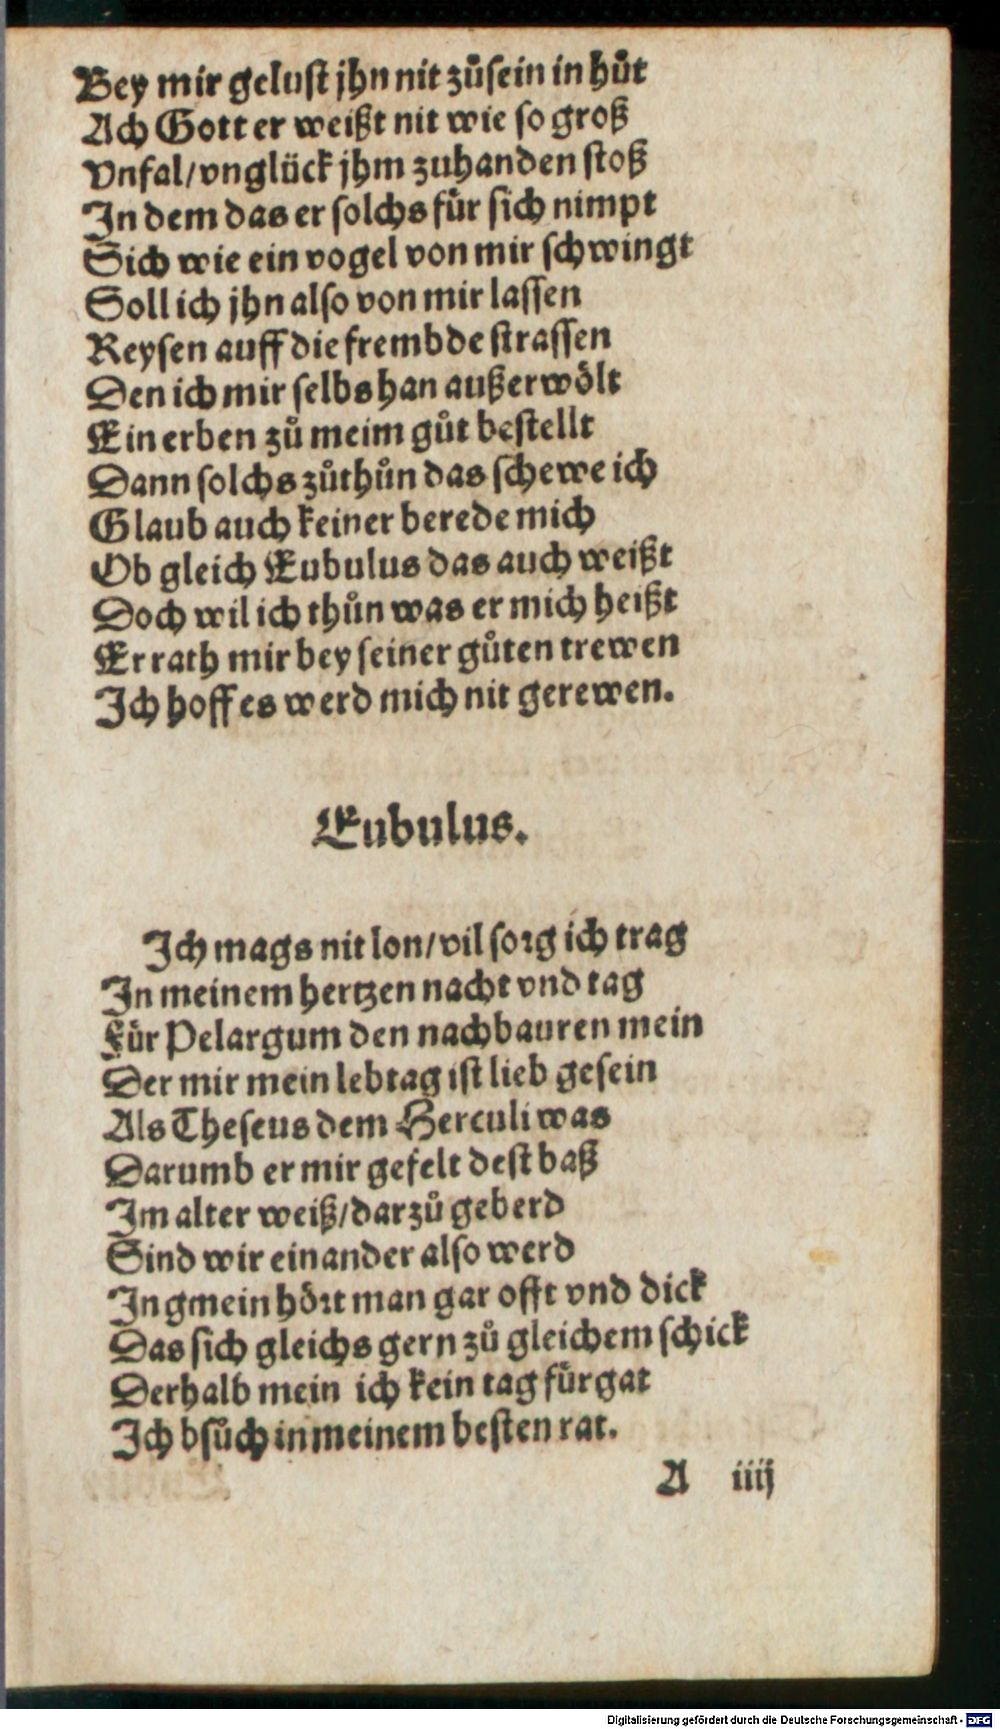 Bey mir gelust jhn nit zůsein in hůt
Ach Gott er weißt nit wie so groß
Vnfal/vnglück jhm zuhanden stoß
In dem das er solchs für sich nimpt
Sich wie ein vogel von mir schwingt
Soll ich jhn also von mir lassen
Reysen auff die frembde strassen
Den ich mir selbs han außerwölt
Ein erben zů meim gůt bestellt
Dann solchs zůthůn das schewe ich
Glaub auch keiner berede mich
Ob gleich Eubulus das auch weißt
Doch wil ich thůn was er mich heißt
Er rath mir bey seiner gůten trewen
Ich hoff es werd mich nit gerewen.
Eubulus.
Ich mags nit lon/vil sorg ich trag
In meinem hertzen nacht vnd tag
Für Pelargum den nachbauren mein
Der mir mein lebtag ist lieb gesein
Als Theseus dem Herculi was
Darumb er mir gefelt dest baß
Im alter weiß/darzů geberd
Sind wir einander also werd
In gmein hört man gar offt vnd dick
Das sich gleichs gern zů gleichem schick
Derhalb mein ich kein tag fürgat
Ich bsůch in meinem besten rat.
A iiij
Digitalisierung gefördert durch die Deutsche Forschungsgemeinschaft - DFG